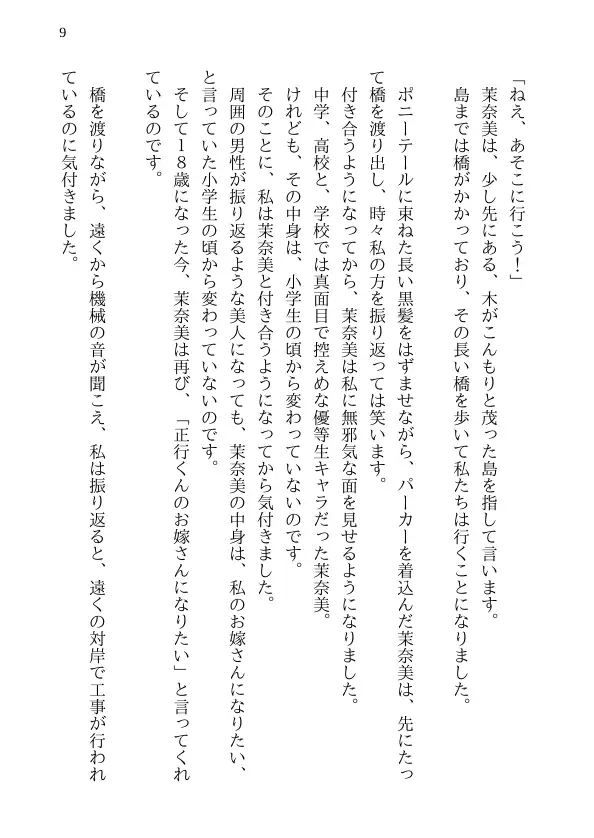 9
「ねえ、あそこに行こう！」
　茉奈美は、少し先にある、木がこんもりと茂った島を指して言います。
　島までは橋がかかっており、その長い橋を歩いて私たちは行くことになりました。
　ポニーテールに束ねた長い黒髪をはずませながら、パーカーを着込んだ茉奈美は、先にたっ
て橋を渡り出し、時々私の方を振り返っては笑います。
　付き合うようになってから、茉奈美は私に無邪気な面を見せるようになりました。
　中学、高校と、学校では真面目で控えめな優等生キャラだった茉奈美。
　けれども、その中身は、小学生の頃から変わっていないのです。
　そのことに、私は茉奈美と付き合うようになってから気付きました。
　周囲の男性が振り返るような美人になっても、茉奈美の中身は、私のお嫁さんになりたい、
と言っていた小学生の頃から変わっていないのです。
　そして１８歳になった今、茉奈美は再び、「正行くんのお嫁さんになりたい」と言ってくれ
ているのです。
　橋を渡りながら、遠くから機械の音が聞こえ、私は振り返ると、遠くの対岸で工事が行われ
ているのに気付きました。